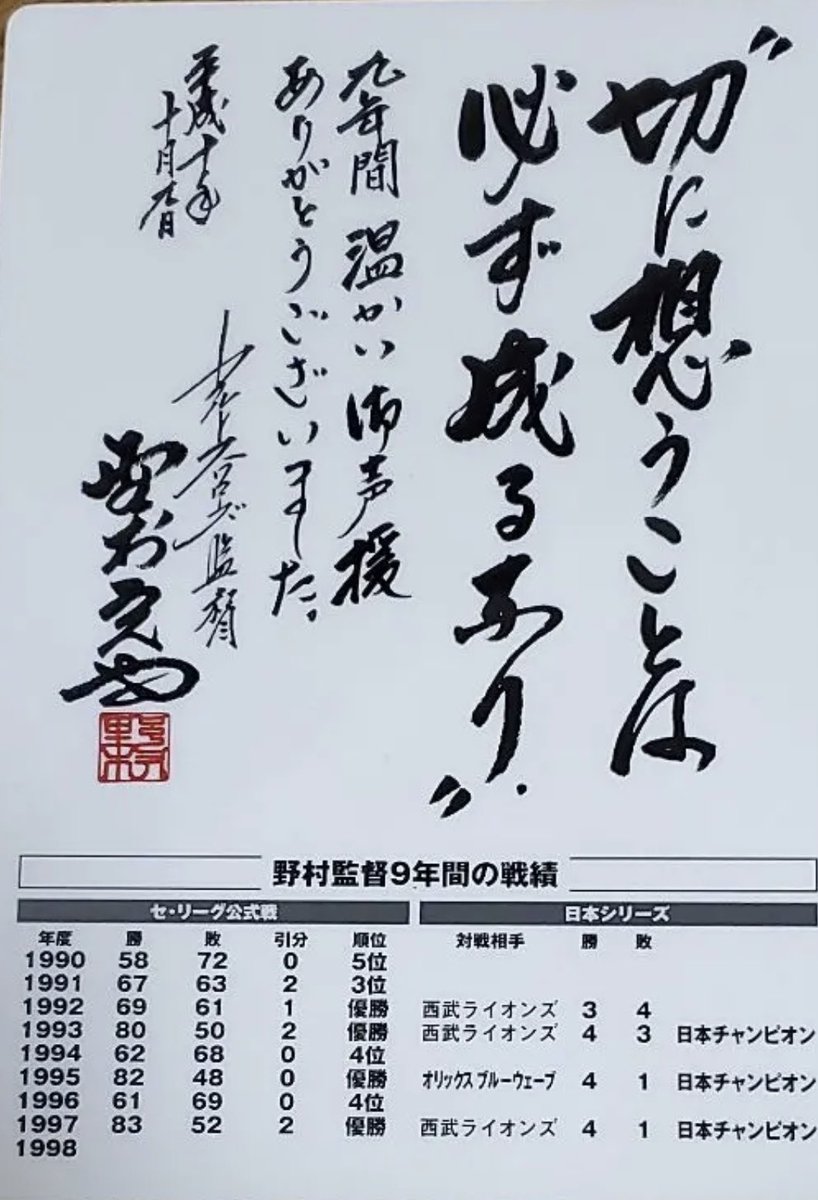 〝切に想うことは
必ず成るあり.〟
九年間 温かい御声援
ありがとうございました。
平成十年
十月吉日
ヤクルトスワローズ監督
野村克也
野村
野村監督9年間の戦績
セ・リーグ公式戦 日本シリーズ
年度 勝 敗 引分 順位 対戦相手 勝 敗
1990 58 72 0 5位
1991 67 63 2 3位
1992 69 61 1 優勝 西武ライオンズ 3 4
1993 80 50 2 優勝 西武ライオンズ 4 3 日本チャンピオン
1994 62 68 0 4位
1995 82 48 0 優勝 オリックスブルーウェーブ 4 1 日本チャンピオン
1996 61 69 0 4位
1997 83 52 2 優勝 西武ライオンズ 4 1 日本チャンピオン
1998